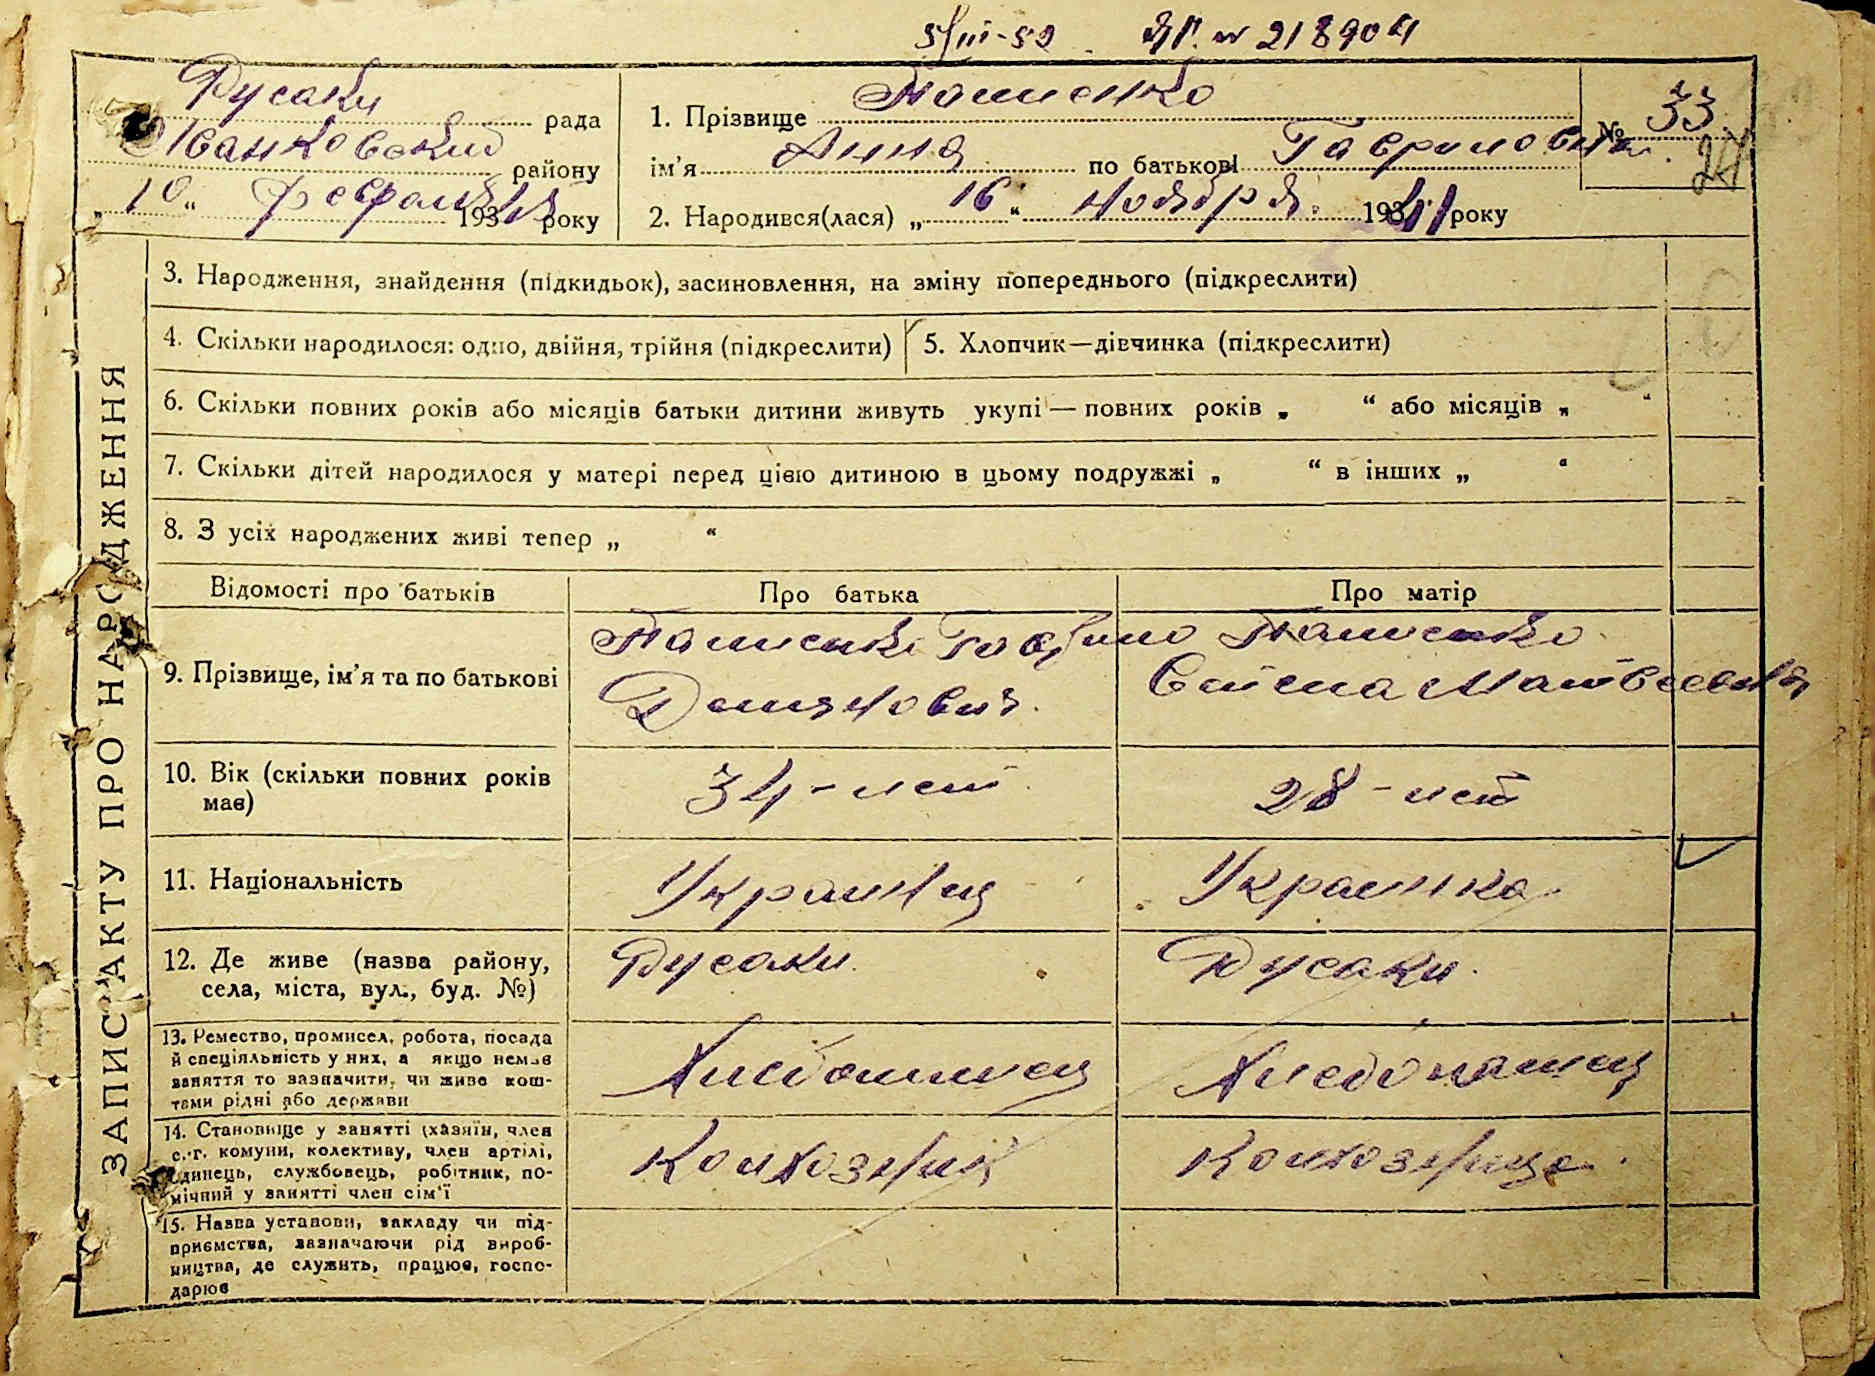 5/III-52 № 218904
Русаки рада
Иванковский району
„10“ Февраля 193 року
1. Прізвище
№ 33
24
ім'я Анна по батькові Гавриловна
2. Народився(лася) „16“ Ноября 1941 року
ЗАПИС АКТУ ПРО НАРОДЖЕННЯ
3. Народження, знайдення (підкидьок), засиновлення, на зміну попереднього (підкреслити)
4. Скільки народилося: одно, двійня, трійня (підкреслити)
5. Хлопчик—дівчинка (підкреслити)
6. Скільки повних років або місяців батьки дитини живуть укупі — повних років „ “ або місяців „ “
7. Скільки дітей народилося у матері перед цією дитиною в цьому подружжі „ “ в інших „ “
8. З усіх народжених живі тепер „ “
Відомості про батьків Про батька Про матір
9. Прізвище, ім'я та по батькові
Гаврило
Демянович
Елена Матвеевна
10. Вік (скільки повних років
має)
34 - лет
28 - лет
11. Національність
Украинец
Украинка
12. Де живе (назва району,
села, міста, вул., буд. №)
Русаки.
Русаки.
13. Ремество, промисел, робота, посада
й спеціяльність у них, а якщо немає
заняття то зазначити, чи живе кош-
тами рідні або держави
Хлебопашец
Хлебопашец
14. Становище у занятті (хазяїн, член
с.-г. комуни, колективу, член артілі,
одинець, службовець, робітник, по-
мічний у занятті член сім'ї
Колхозник
Колхозница.
15. Назва установи, закладу чи під-
приємства, зазначаючи рід вироб-
ництва, де служить, працює, госпо-
дарює